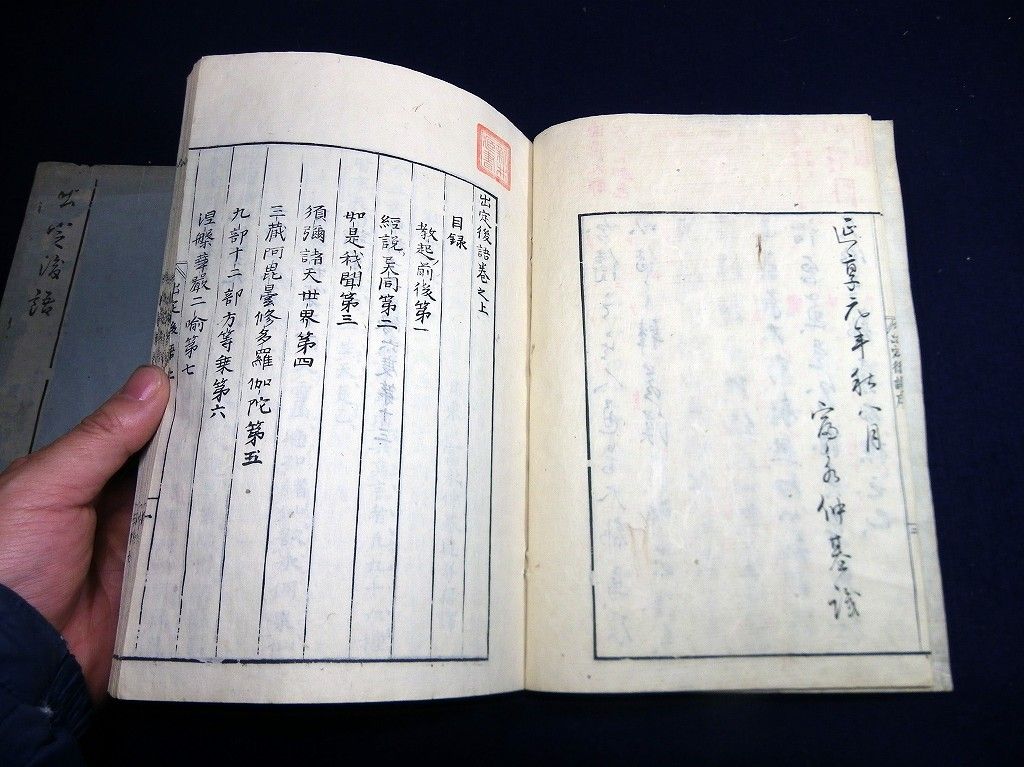 延享元年秋八月
富永仲基識
出定後語卷之上
目録
教起前後第一
經説異同第二
如是我聞第三
須彌諸天世界第四
三藏阿毘曇修多羅伽陀第五
九部十二部方等乗第六
涅槃華嚴二喩第七
出定後語